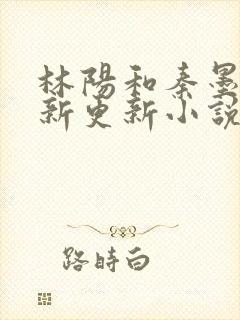 林陽和秦墨
新更新小說
路時白